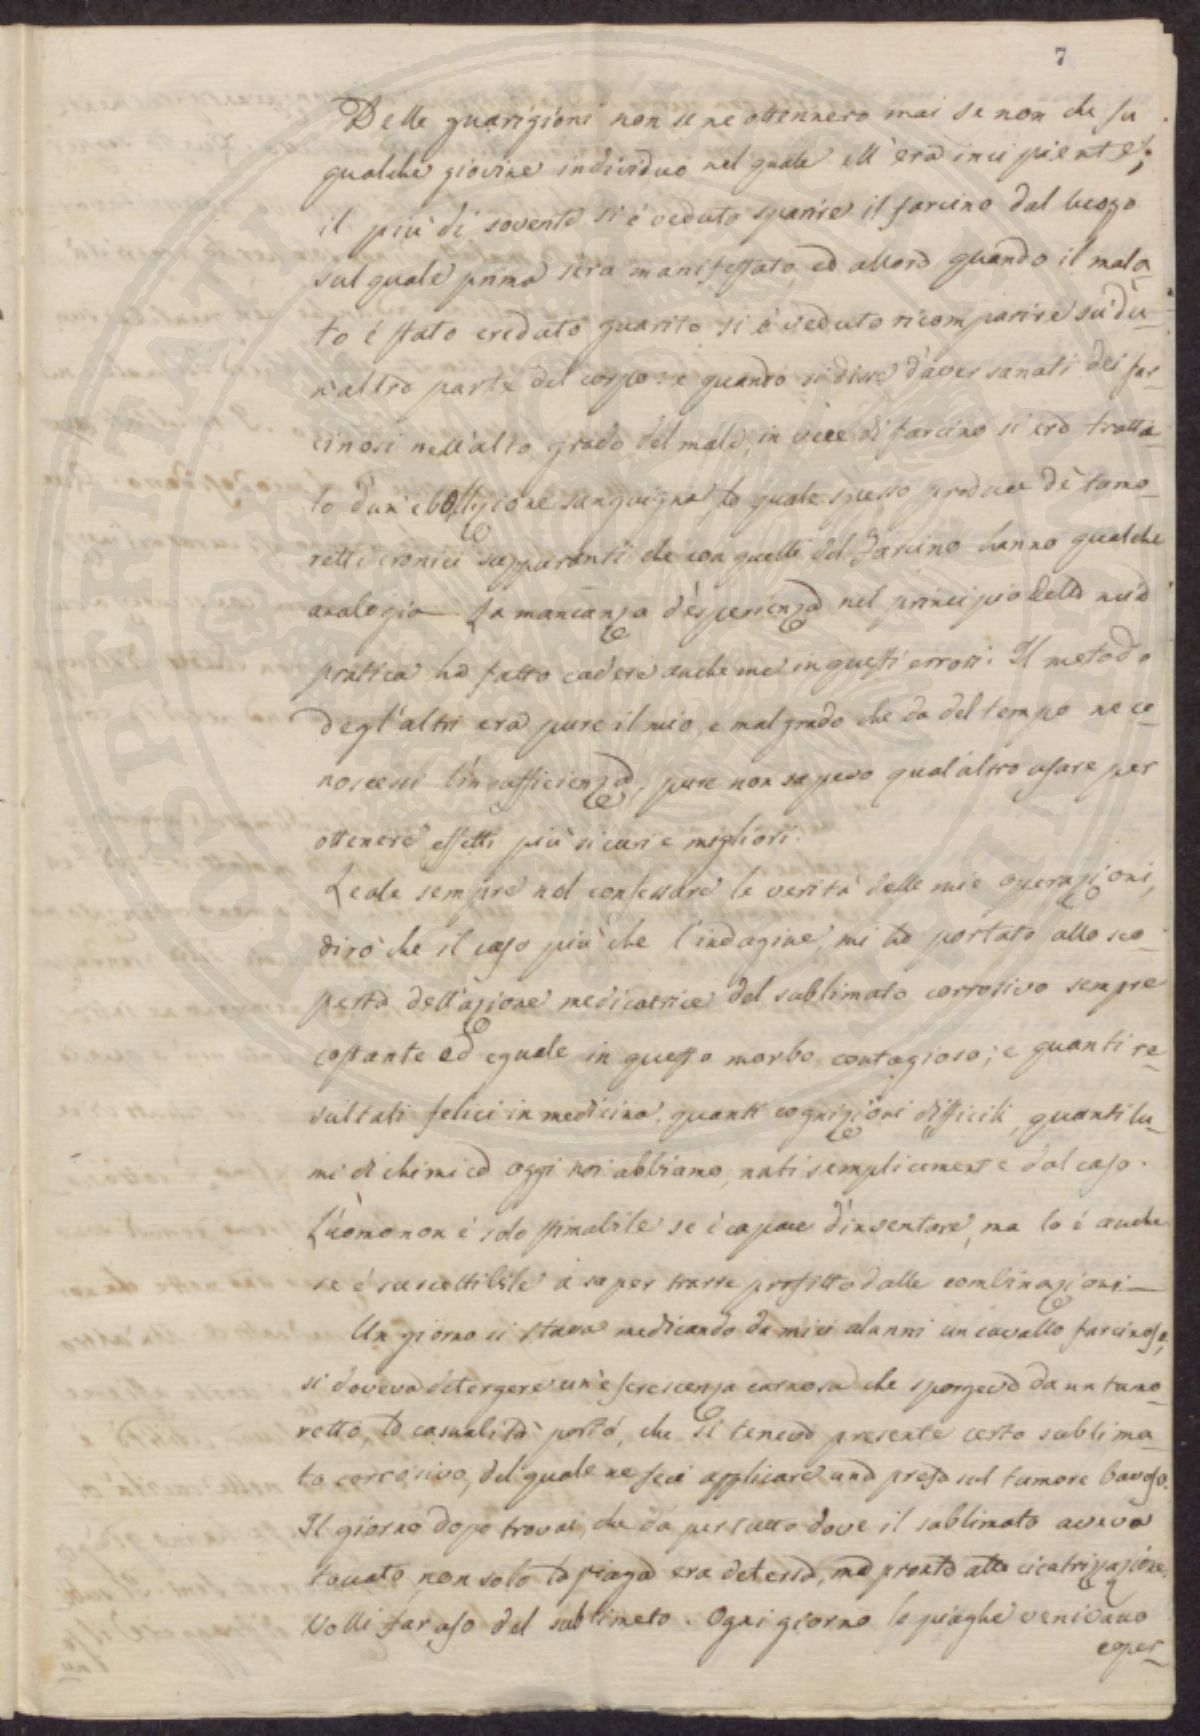 7
Delle guarigioni non se ne ottennero mai se non che su
qualche giovine individuo nel quale ell'era incipiente;
il più di sovente si è veduto sparire il farcino dal luogo
sul quale prima s'era manifestato, ed allora quando il mala-
to è stato creduto guarito, si è veduto ricomparire su d'u-
n'altra parte del corpo: e quando si disse d'aver sanati dei far-
cinosi nell'alto grado del male, in vece di farcino si era tratta-
to d'un'ebollizione sanguigna, la quale spesso produce de' tumo-
retti cronici suppuranti che con quelli del Farcino hanno qualche
analogia — La mancanza d'esperienza nel principio della mia
pratica ha fatto cadere anche me in questi errori. Il metodo
degl'altri era pure il mio, e mal grado che da del tempo ne co-
noscessi l'insufficienza, pure non sapevo qual'altro usare per
ottenere effetti più sicuri e migliori.
Leale sempre nel confessare la verità delle mie operazioni,
dirò che il caso più che l'indagine, mi ha portato alla sco-
perta dell'azione medicatrice del sublimato corrosivo sempre
costante ed eguale in questo morbo contagioso; e quanti re-
sultati felici in medicina, quanti cognizioni difficili, quanti lu-
mi di chimica oggi noi abbiamo, nati semplicemente dal caso.
L'uomo non è solo stimabile se è capace d'inventare, ma lo è anche
se è suscettibile a saper trarre profitto dalle combinazioni —
Un giorno si stava medicando da miei alunni un cavallo farcinoso,
si doveva detergere un'escrescenza carnosa che sporgeva da un tumo-
retto, la casualità portò, che si teneva presente certo sublima-
to corrosivo, del quale ne feci applicare una presa sul tumore bavoso.
Il giorno dopo trovai, che da per tutto dove il sublimato aveva
toccato, non solo la piaga era detersa, ma pronta alla cicatrizazione.
Volli far uso del sublimato. Ogni giorno le piaghe venivano
coper-